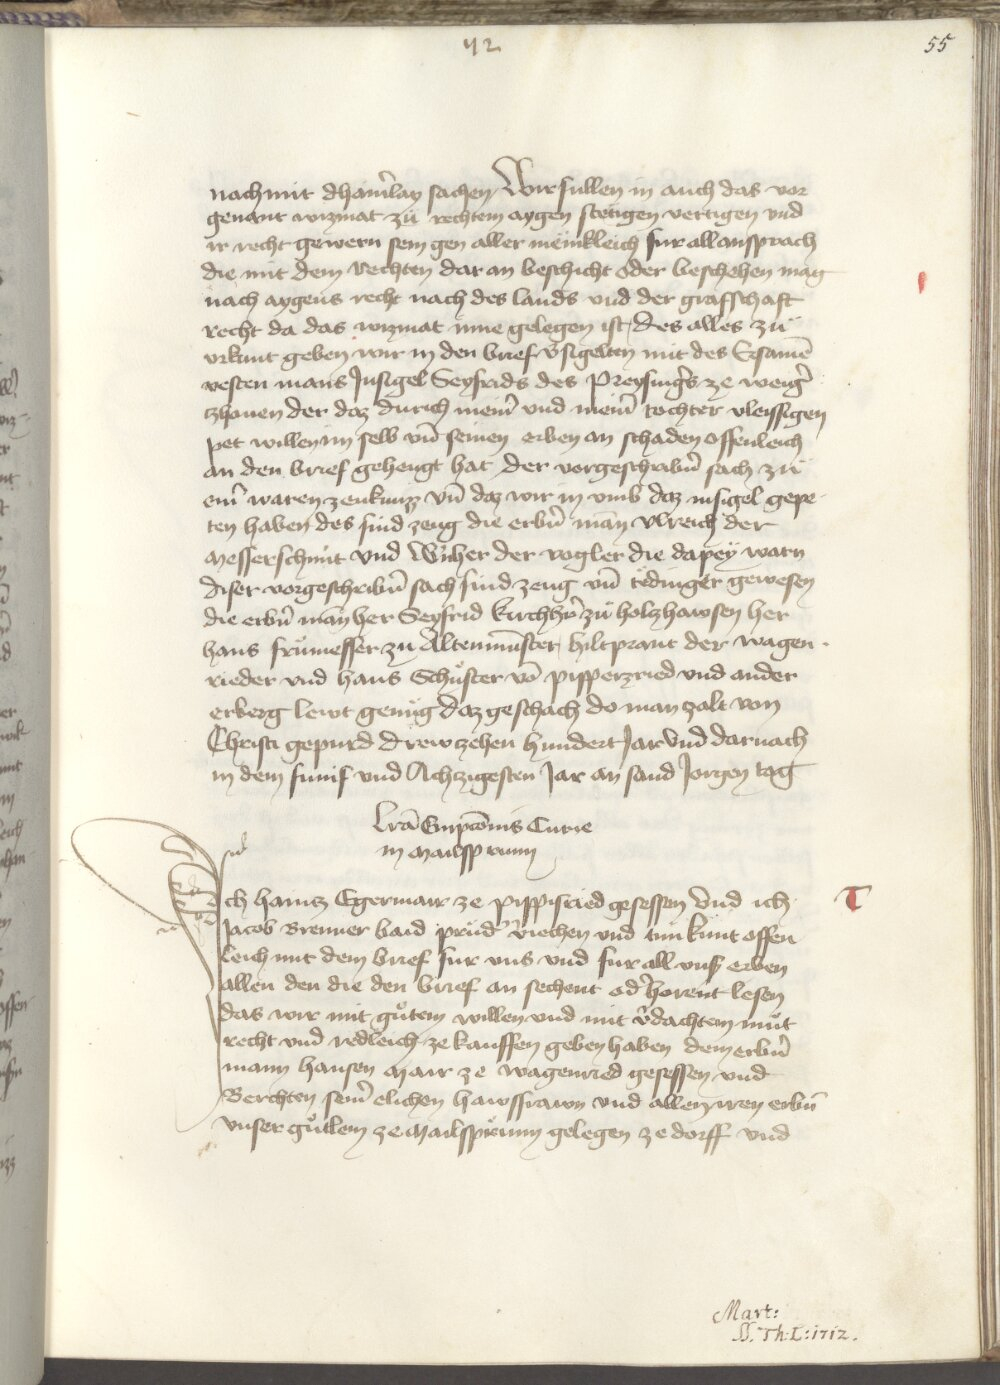 42
55
nach mit dhain̄lay sachen Wir sullen in auch das vor
genant wizmat zu rechtem aygen stetigen vertigen vnd
ir recht gewern sein gen aller meinkleich fur all ansprach
die mit dem Rechten dar an beschicht oder beschehen mag
nach aygens recht nach des lands vnd der grafschaft
recht da das wizmat inne gelegen ist / des alles zu
vrkunt geben wir in den brief v̄sigelten mit des Ersamē
vesten mans Insigel Seyfrids des Preysinḡs ze wenḡ
zhouen der daz durich mein̄ vnd mein̄ tochter vleissigen
pet willen im selb vn̄ seinen erben an schaden offenleich
an den brief gehengt hat der vorgeschribn̄ sach zu
ein̄ waren zeukunz vn̄ daz wir in vmb daz insigel gepe
ten haben des sind zeug die erbn̄ man vlreich der
Messerschmit vnd Wn̄her der vogler die dapey warn
diser vorgeschribn̄ sach sind zeug vn̄ tedinger gewesen
die erbn̄ man her Seyfrid kirchh̄r zu holzhawsen her
hans frumesser zu Altenmunster hiltprant der wagen
rieder vnd hans Schuster vō pipperzried vnd ander
erberg lewt genug daz geschach do man zalt von
Christi gepurd drewzehen hundert Jar vnd darnach
in dem funif vnd Achzigesten Jar an sand Jorgen tag
Lrā Empcōnis Curie
in Mailsprunn
Ich haintz Egermair ze pippisried gesessen vnd ich
Jacob Brenner baid prud̄ v̄iechen vnd tun kunt offen
leich mit dem brief fur vns vnd fur all vns̄ erben
allen den die den brief an sehent od̄ horent lesen
das wir mit gutem willen vnd mit v̄dachtem mut
recht vnd redleich ze kauffen geben haben dem erbn̄
mann hansen Mair ze wagenried gesessen vnd
Berchten sein̄ elichen hawsfrawn vnd allen iren erbn̄
vnser gutlein ze Mailsprunn gelegen ze dorff vnd
Mart:
SS. Th: L: 1712.